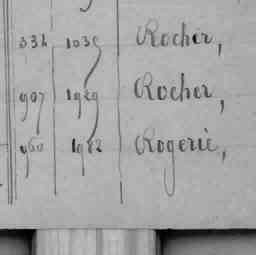 334 1039 Rocher,
907 1929 Rocher,
960 1982 Rogerie,